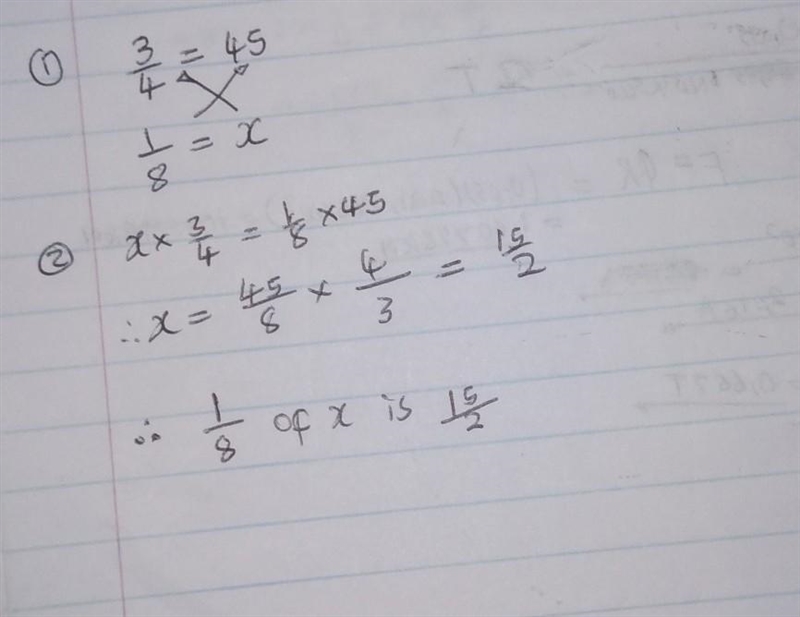 ① 3/4 = 45
1/8 = x
② x × 3/4 = 1/8 × 45
∴ x = 45/8 × 4/3 = 15/2
∴ 1/8 of x is 15/2